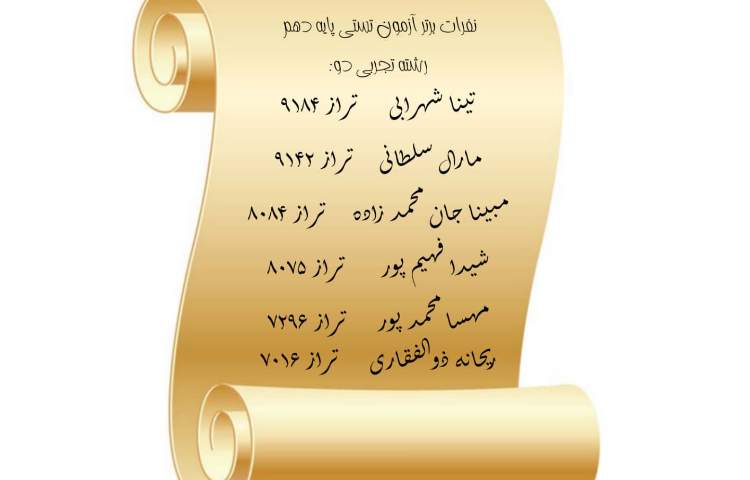 نفرات برتر آزمون تستی پایه دهم
رشته تجربی دو:
تینا شهرابی تراز ۹۱۸۴
مارال سلطانی تراز ۹۱۴۲
مبینا جان محمد زاده تراز ۸۰۸۴
شیدا فهیم پور تراز ۸۰۷۵
مهسا محمد پور تراز ۷۲۹۶
ریحانه ذوالفقاری تراز ۷۰۱۶